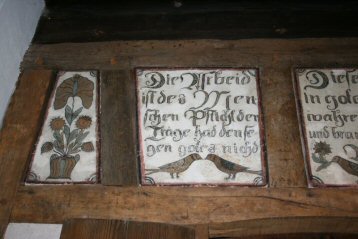 Die Arbeid
ist des Men
schen Pflicht der
Träge had den se
gen gotes nichd
Diese
in gote
wahre
und brau